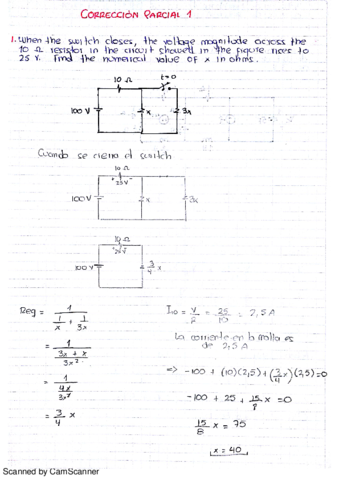 CORRECCIÓN PARCIAL 1
1. When the switch closes, the voltage magnitude across the
10 Ω resistor in the circuit showed in the figure rises to
25 V. Find the numerical value OF x in ohms.
10 Ω t=0
100 V x 3x
Cuando se cierra el switch
10 Ω
+ 25V -
100V x 3x
10 Ω
+ 25V -
100 V 3/4 x
Req = 1 / (1/x + 1/3x)
= 1 / ((3x + x) / 3x²)
= 1 / (4x / 3x²)
= 3/4 x
I10 = V/R = 25/10 = 2,5 A
La corriente en la malla es
de 2,5 A
=> -100 + (10)(2,5) + (3/4 x)(2,5) = 0
-100 + 25 + 15/8 x = 0
15/8 x = 75
x = 40
Scanned by CamScanner